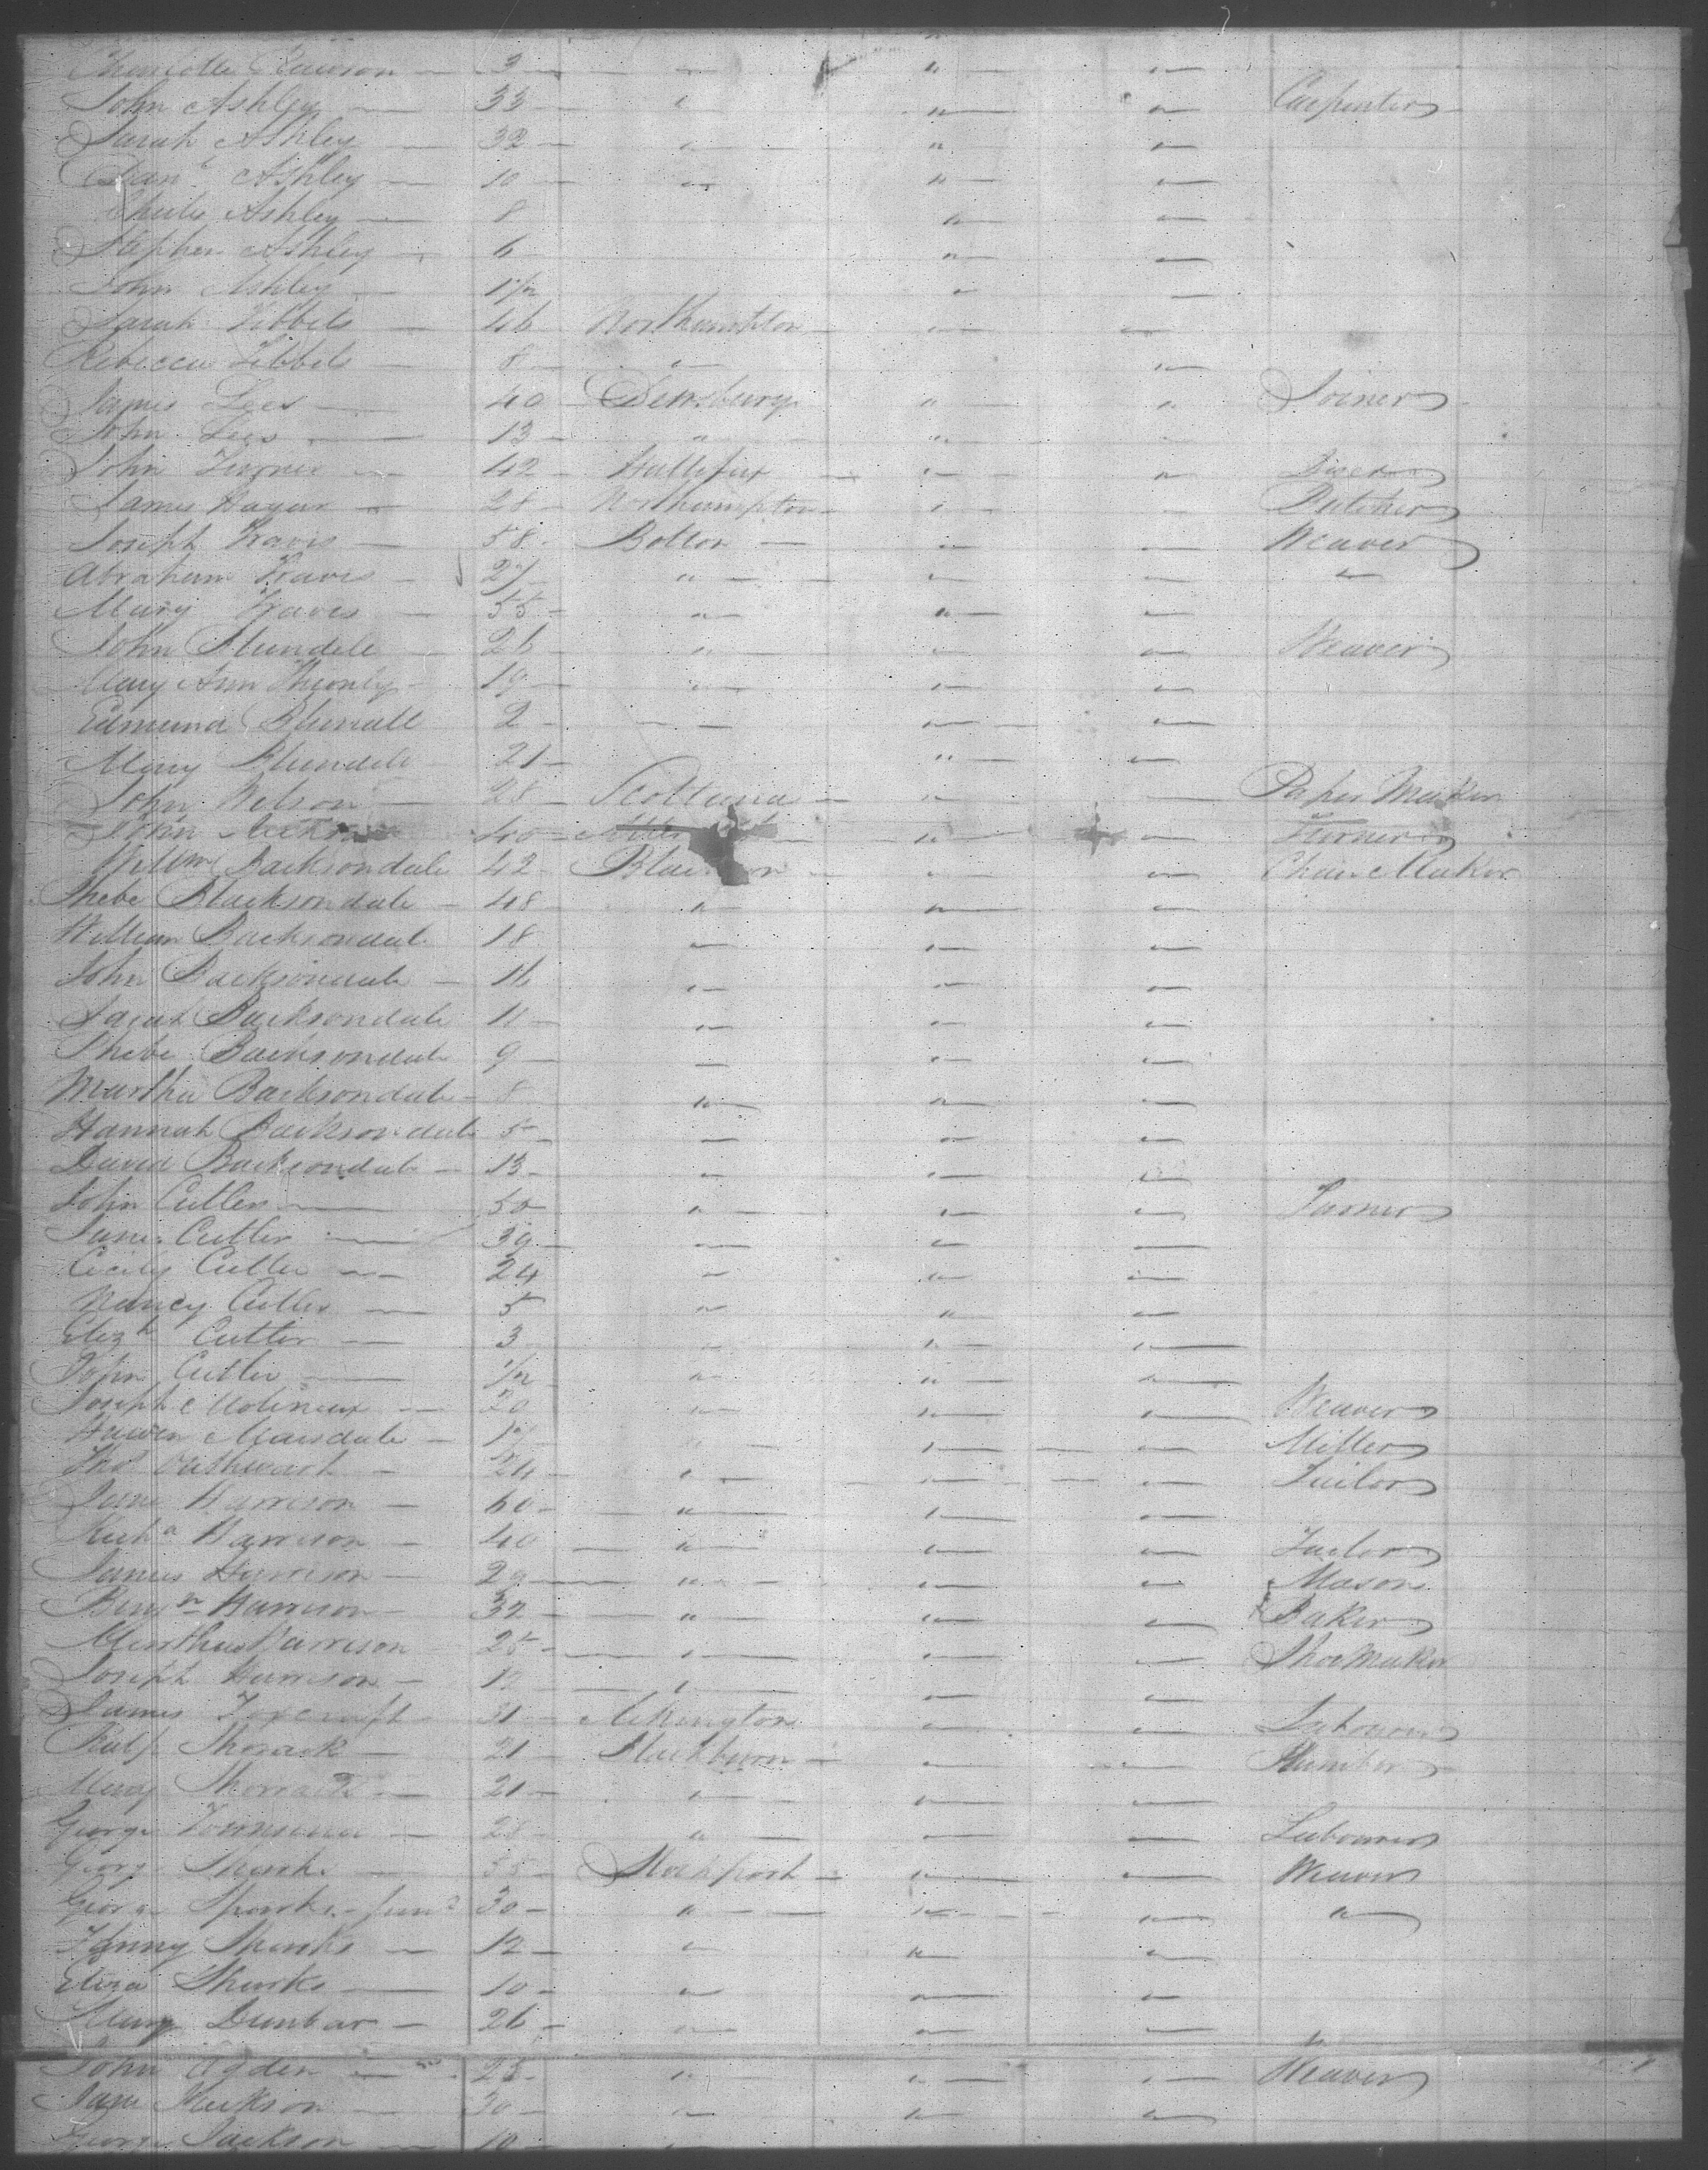 Charlotte Rawson — 3 — " " "
John Ashley — 33 — " " " Carpenter
Sarah Ashley — 32 — " " "
Danl Ashley — 10 — " " "
Ashley — 8 " "
Stephen Ashley 6 " "
John Ashley 1 1/2 " "
Sarah Tibbels — 46 Northamton — " "
Rebecca Tibbels — 8 — " "
James Lees — 40 Dewsbury " " Joiner
John Lees — 13 — " "
John Turner — 42 — Hallifax — " "
James — 28 — Northampton — " Butcher
Joseph Travis — 58 Bolton — " " Weaver
Abraham Travis — 27 — " " " "
Mary Travis — 55 — " " "
John Blundele 26 " " " Weaver
Mary Ann 19 — " " "
Edmund Blundell 2 — " " "
Mary Blundele 21 — " "
John Wilson — 28 — Scotland — " Paper Maker
John 40 " " Turner
Willm Backsondale 42 " " Chair Maker
Phebe Blacksondale — 48 — " " "
William Backsondale 18 " " "
John Backsondale — 16 " " "
Sarah Backsondale 11 — " " "
Phebe Backsondale 9 — " " "
Martha Backsondale — 8 " " "
Hannah Backsondale 5 — " " "
David Backsondale — 13 — " " "
John Cutler — 50 " " "
Jane Cutler — 39 — " " "
Cicily Cutler — 24 " " "
Nancy Cutler — 5 " " "
Elizh Cutler — 3 " " "
John Cutler — 1/2 " " "
Joseph Molineux — 20 " " " Weaver
Marsdale — " " Miller
Thos — 24 — " " " Tailor
Jane Harrison — 60 — " " "
Richd Harrison — 40 — " " " Tailor
James Harrison — 29 — " " " Mason
Benjn Harrison — 32 — " " " Baker
Harrison 25 — " " " Shoe Maker
Joseph Harrison — 12 — " " "
James Foxcroft 31 — " " Labourer
Ralp — 21 — Blackburn — " " Plumber
Mary — 21 — " " "
George Townsend — 28 " " " Labourer
George Sparks — 55 — Stockport — " " Weaver
George Sparks Junr 30 — " " " "
Fanny Sparks — 12 — " " "
Eliza Sparks — 10 — " " "
Mary Dunbar — 26 — " " "
John Ogden — 25 — " " " Weaver
Jane Jackson — 30 — " " "
George Jackson — 10 — " " "